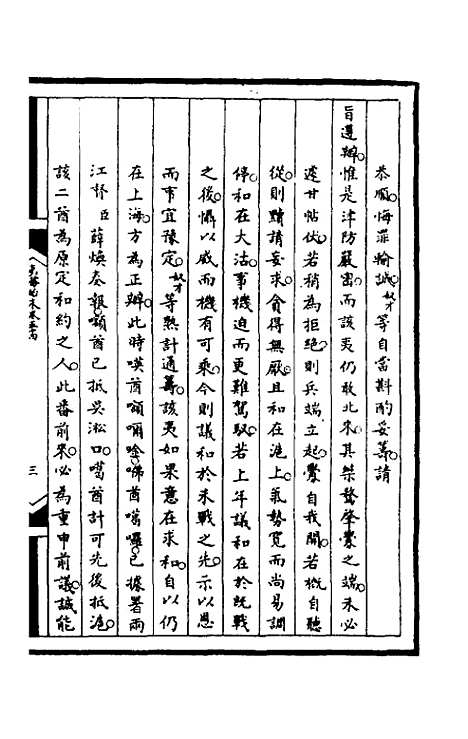 恭順悔罪輸誠奴才等自當斟酌妥籌請
旨遵辦惟是津防嚴密而該夷仍敢北來其桀驁肇釁之端未必
遽甘帖伏若稍為拒絕則兵端立起釁自我開若概自聽
從則贖請妄求貪得無厭且和在滬上氣勢寬而尚易調
停和在大沽事機迫而更難駕馭若上年議和在於既戰
之後懾以威而機有可乘今則議和於未戰之先示以恩
而事宜豫定奴才等熟計通籌該夷如果意在求和自以仍
在上海方為正辦此時嘆酋額爾唫咈酋噶囉已據署兩
江督臣薛煥奏報額酋已抵吳淞口噶酋計可先後抵滬
該二酋為原定和約之人此番前來必為重申前議誠能
三